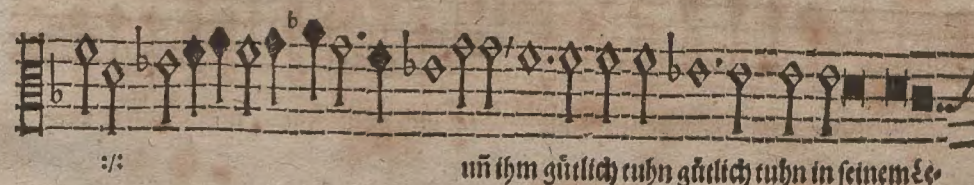 :/: uñ ihm gütlich tuhn gütlich tuhn in seinem Le-